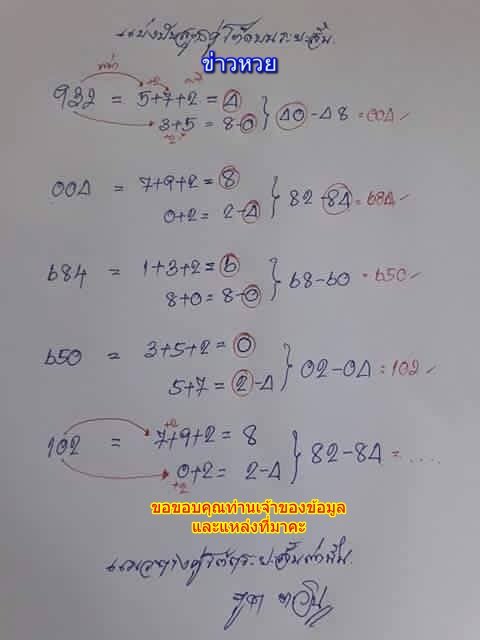 แบ่งปันสูตรคู่โต๊ดบนระยะสั้น.
ข่าวหวย
932 = 5+7+2 = 4
3+5 = 8-0 } 40-48 = 004 ✓
+2
004 = 7+9+2 = 8
0+2 = 2-4 } 82-84 = 684 ✓
684 = 1+3+2 = 6
8+0 = 8-0 } 68-60 = 650 ✓
650 = 3+5+2 = 0
5+7 = 2-4 } 02-04 = 102 ✓
+2
102 = 7+9+2 = 8
0+2 = 2-4 } 82-84 = ....
+2
ขอขอบคุณท่านเจ้าของข้อมูล
และแหล่งที่มาคะ